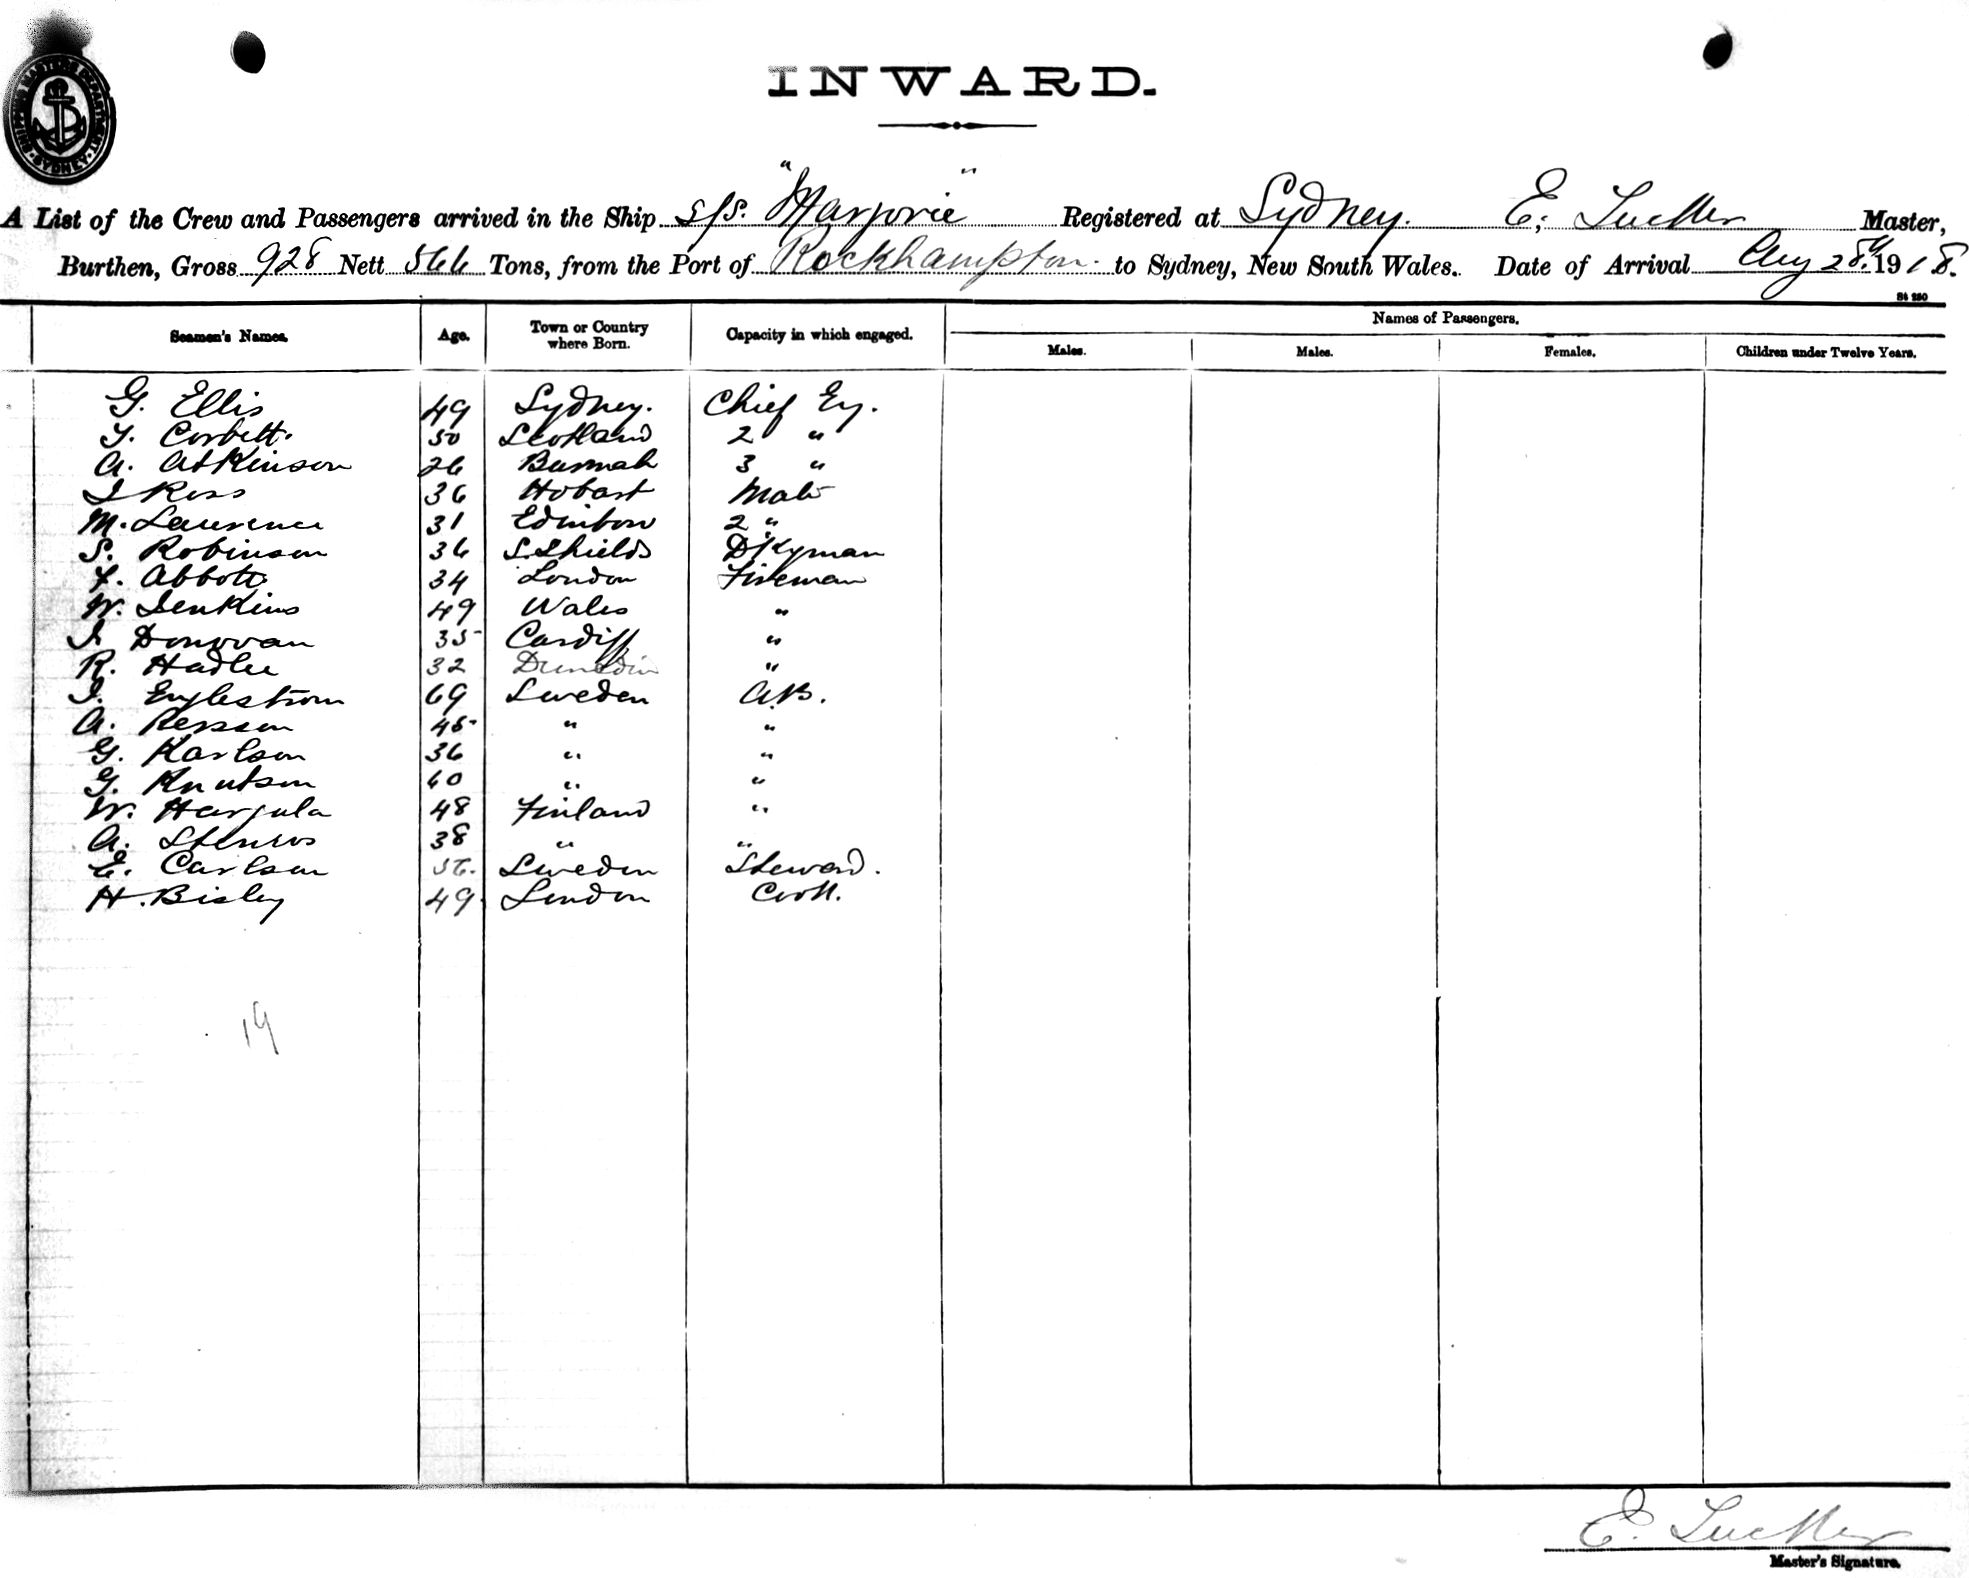 SHIPPING MASTERS DEPARTMENT. SYDNEY.
INWARD.
A List of the Crew and Passengers arrived in the Ship s/s. "Marjorie" Registered at Sydney. E. Master,
Burthen, Gross 928 Nett 566 Tons, from the Port of Rockhampton. to Sydney, New South Wales. Date of Arrival Aug 28th 1918.
St 250
Seamen's Names. Age. Town or Country where Born. Capacity in which engaged. Names of Passengers.
Males. Males. Females. Children under Twelve Years.
G. Ellis 49 Sydney. Chief Eng.
T. Corbett. 50 Scotland 2 "
A. Atkinson 26 Burmah 3 "
J Ross 36 Hobart Mate
M. Laurence 31 Edinboro 2 "
S. Robinson 36 S. Shields Dkyman
F. Abbott 34 London Fireman
W. Jenkins 49 Wales "
J. Donovan 35 Cardiff "
R. Hadlee 32 Dunedin "
J. Englestrom 69 Sweden A.B.
A. Persson 45 " "
G. Karlson 36 " "
G. Knutson 60 " "
W. Harjula 48 Finland "
A. Stenros 38 " "
E. Carlson 56. Sweden Steward.
H. Bisley 49 London Cook.
19
E.
Master's Signature.